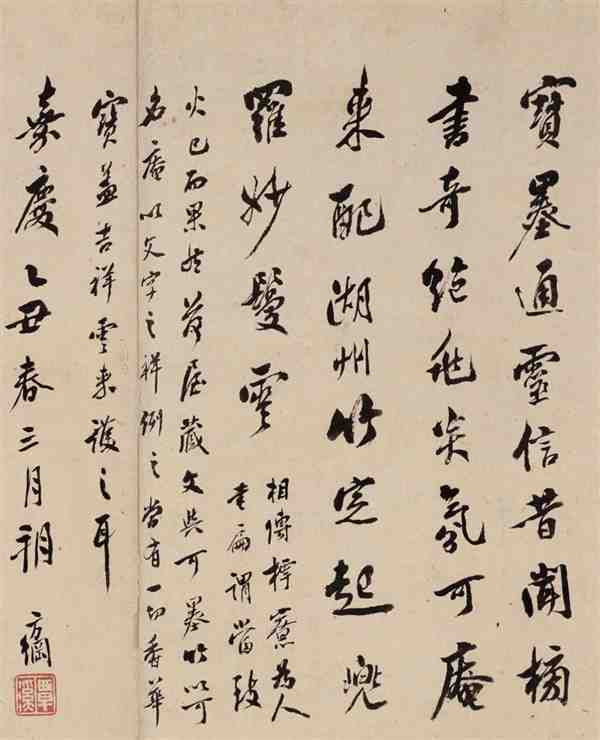 寶墨通靈信昔聞榜
書奇絶兆炎氛可庵
來配湖州竹定起兜
羅妙鬘雲
相傳樗寮為人
書扁謂當致
火已而果然屋藏文與可墨竹以可
名庵以文字之祥例之當有一切香華
寶蓋吉祥雲來護之耳
嘉慶乙丑春三月朔
方綱
覃溪